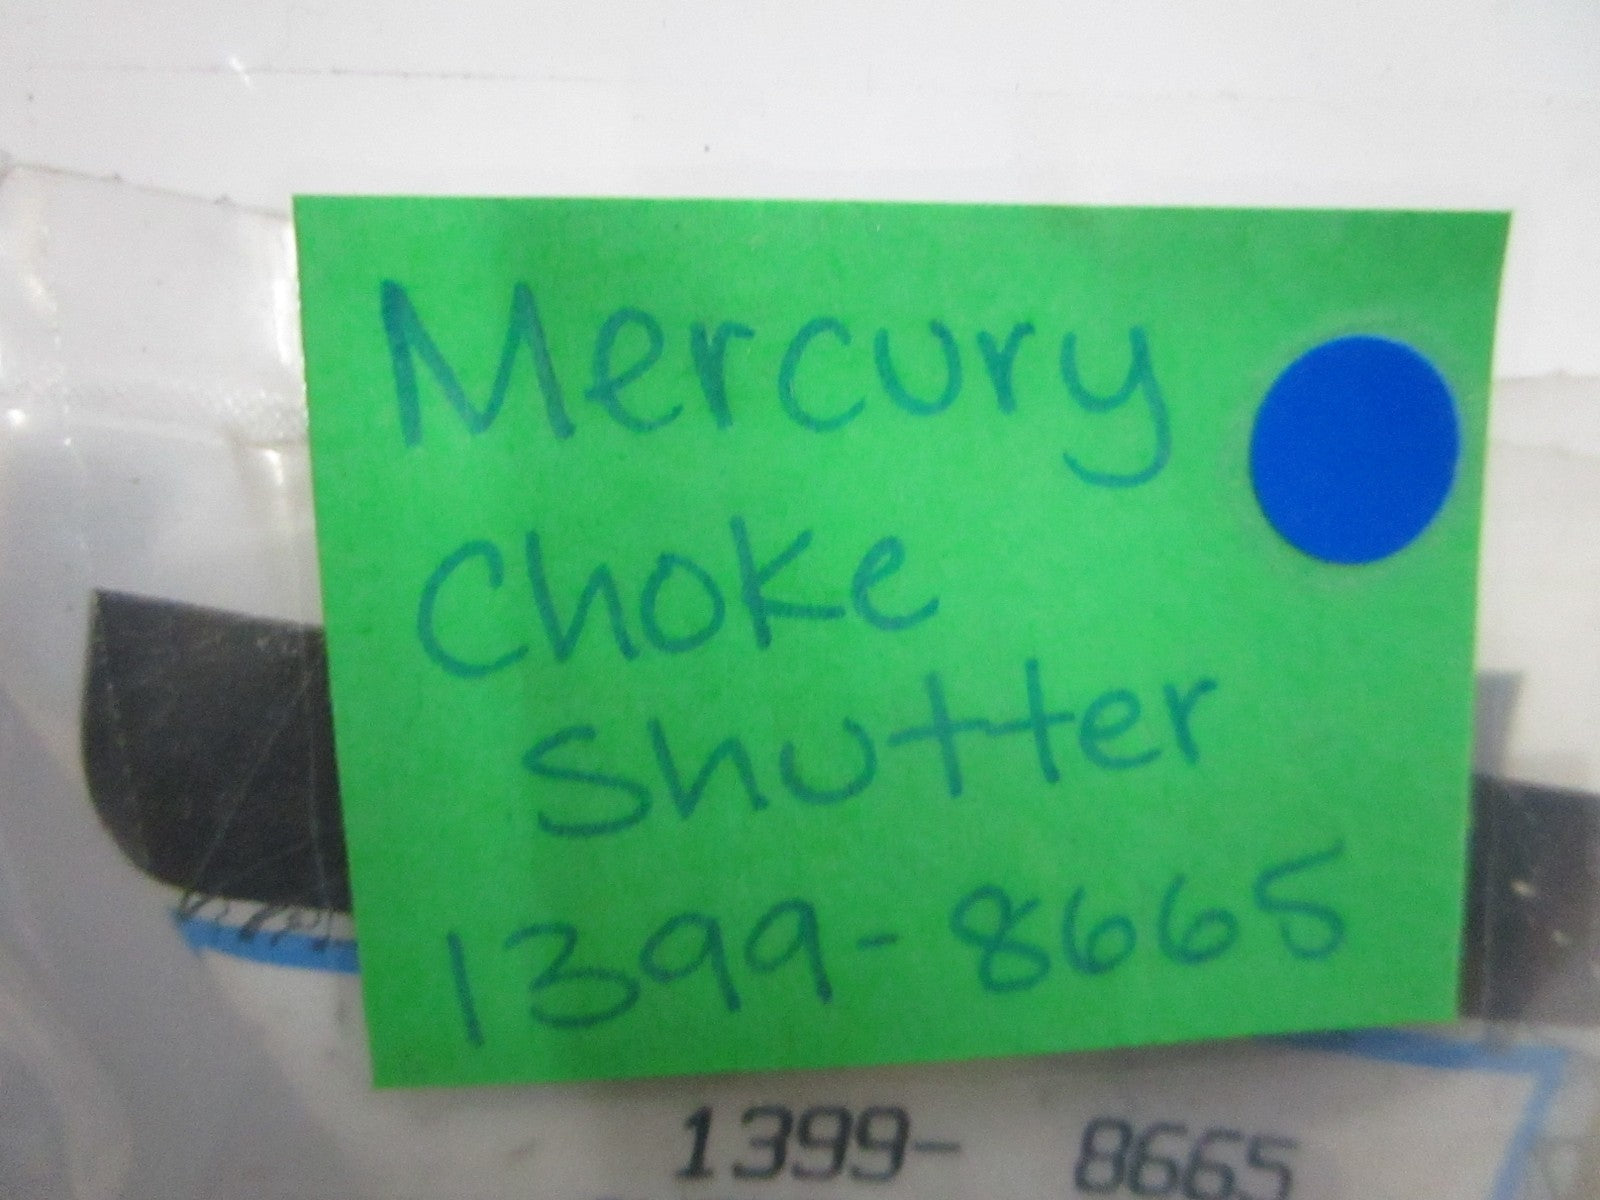 Mercury
Choke
Shutter
1399-8665
1399- 8665